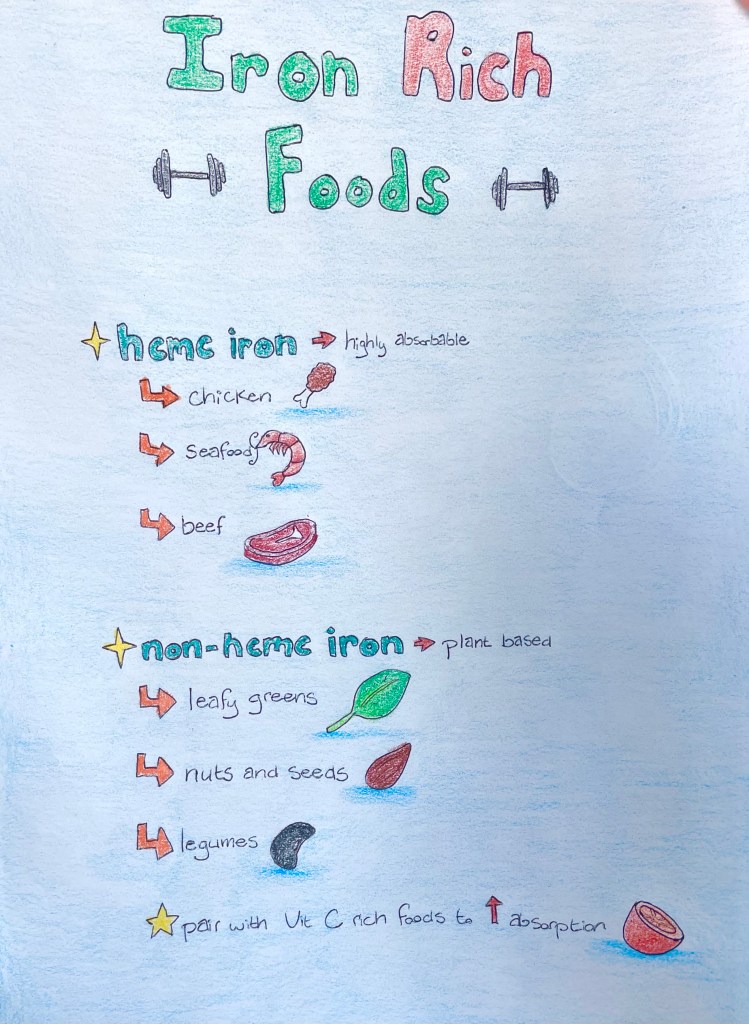 Iron Rich
Foods
heme iron → highly absorbable
chicken
seafood
beef
non-heme iron → plant based
leafy greens
nuts and seeds
legumes
pair with Vit C rich foods to ↑ absorption